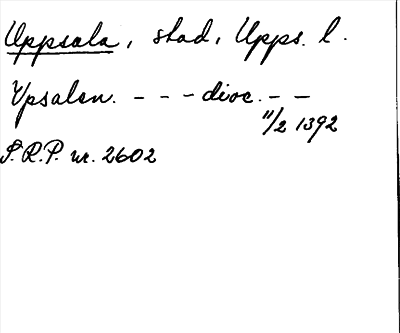 Uppsala, stad, Upps. l.
Ypsalen. - - - dioc. - -
11/2 1392
S.R.P. nr. 2602